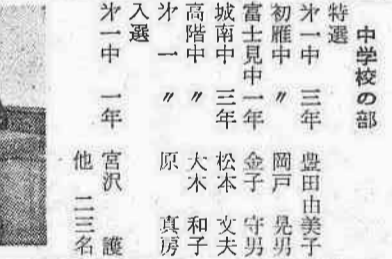 中学校の部
特選
才一中　三年　豊田由美子
初雁中　〃　岡戸　晃男
富士見中一年　金子　守男
城南中　三年　松本　文夫
高階中　〃　大木　和子
才一　〃　原　真房
入選
才一中　一年　宮沢　護
他　二三名